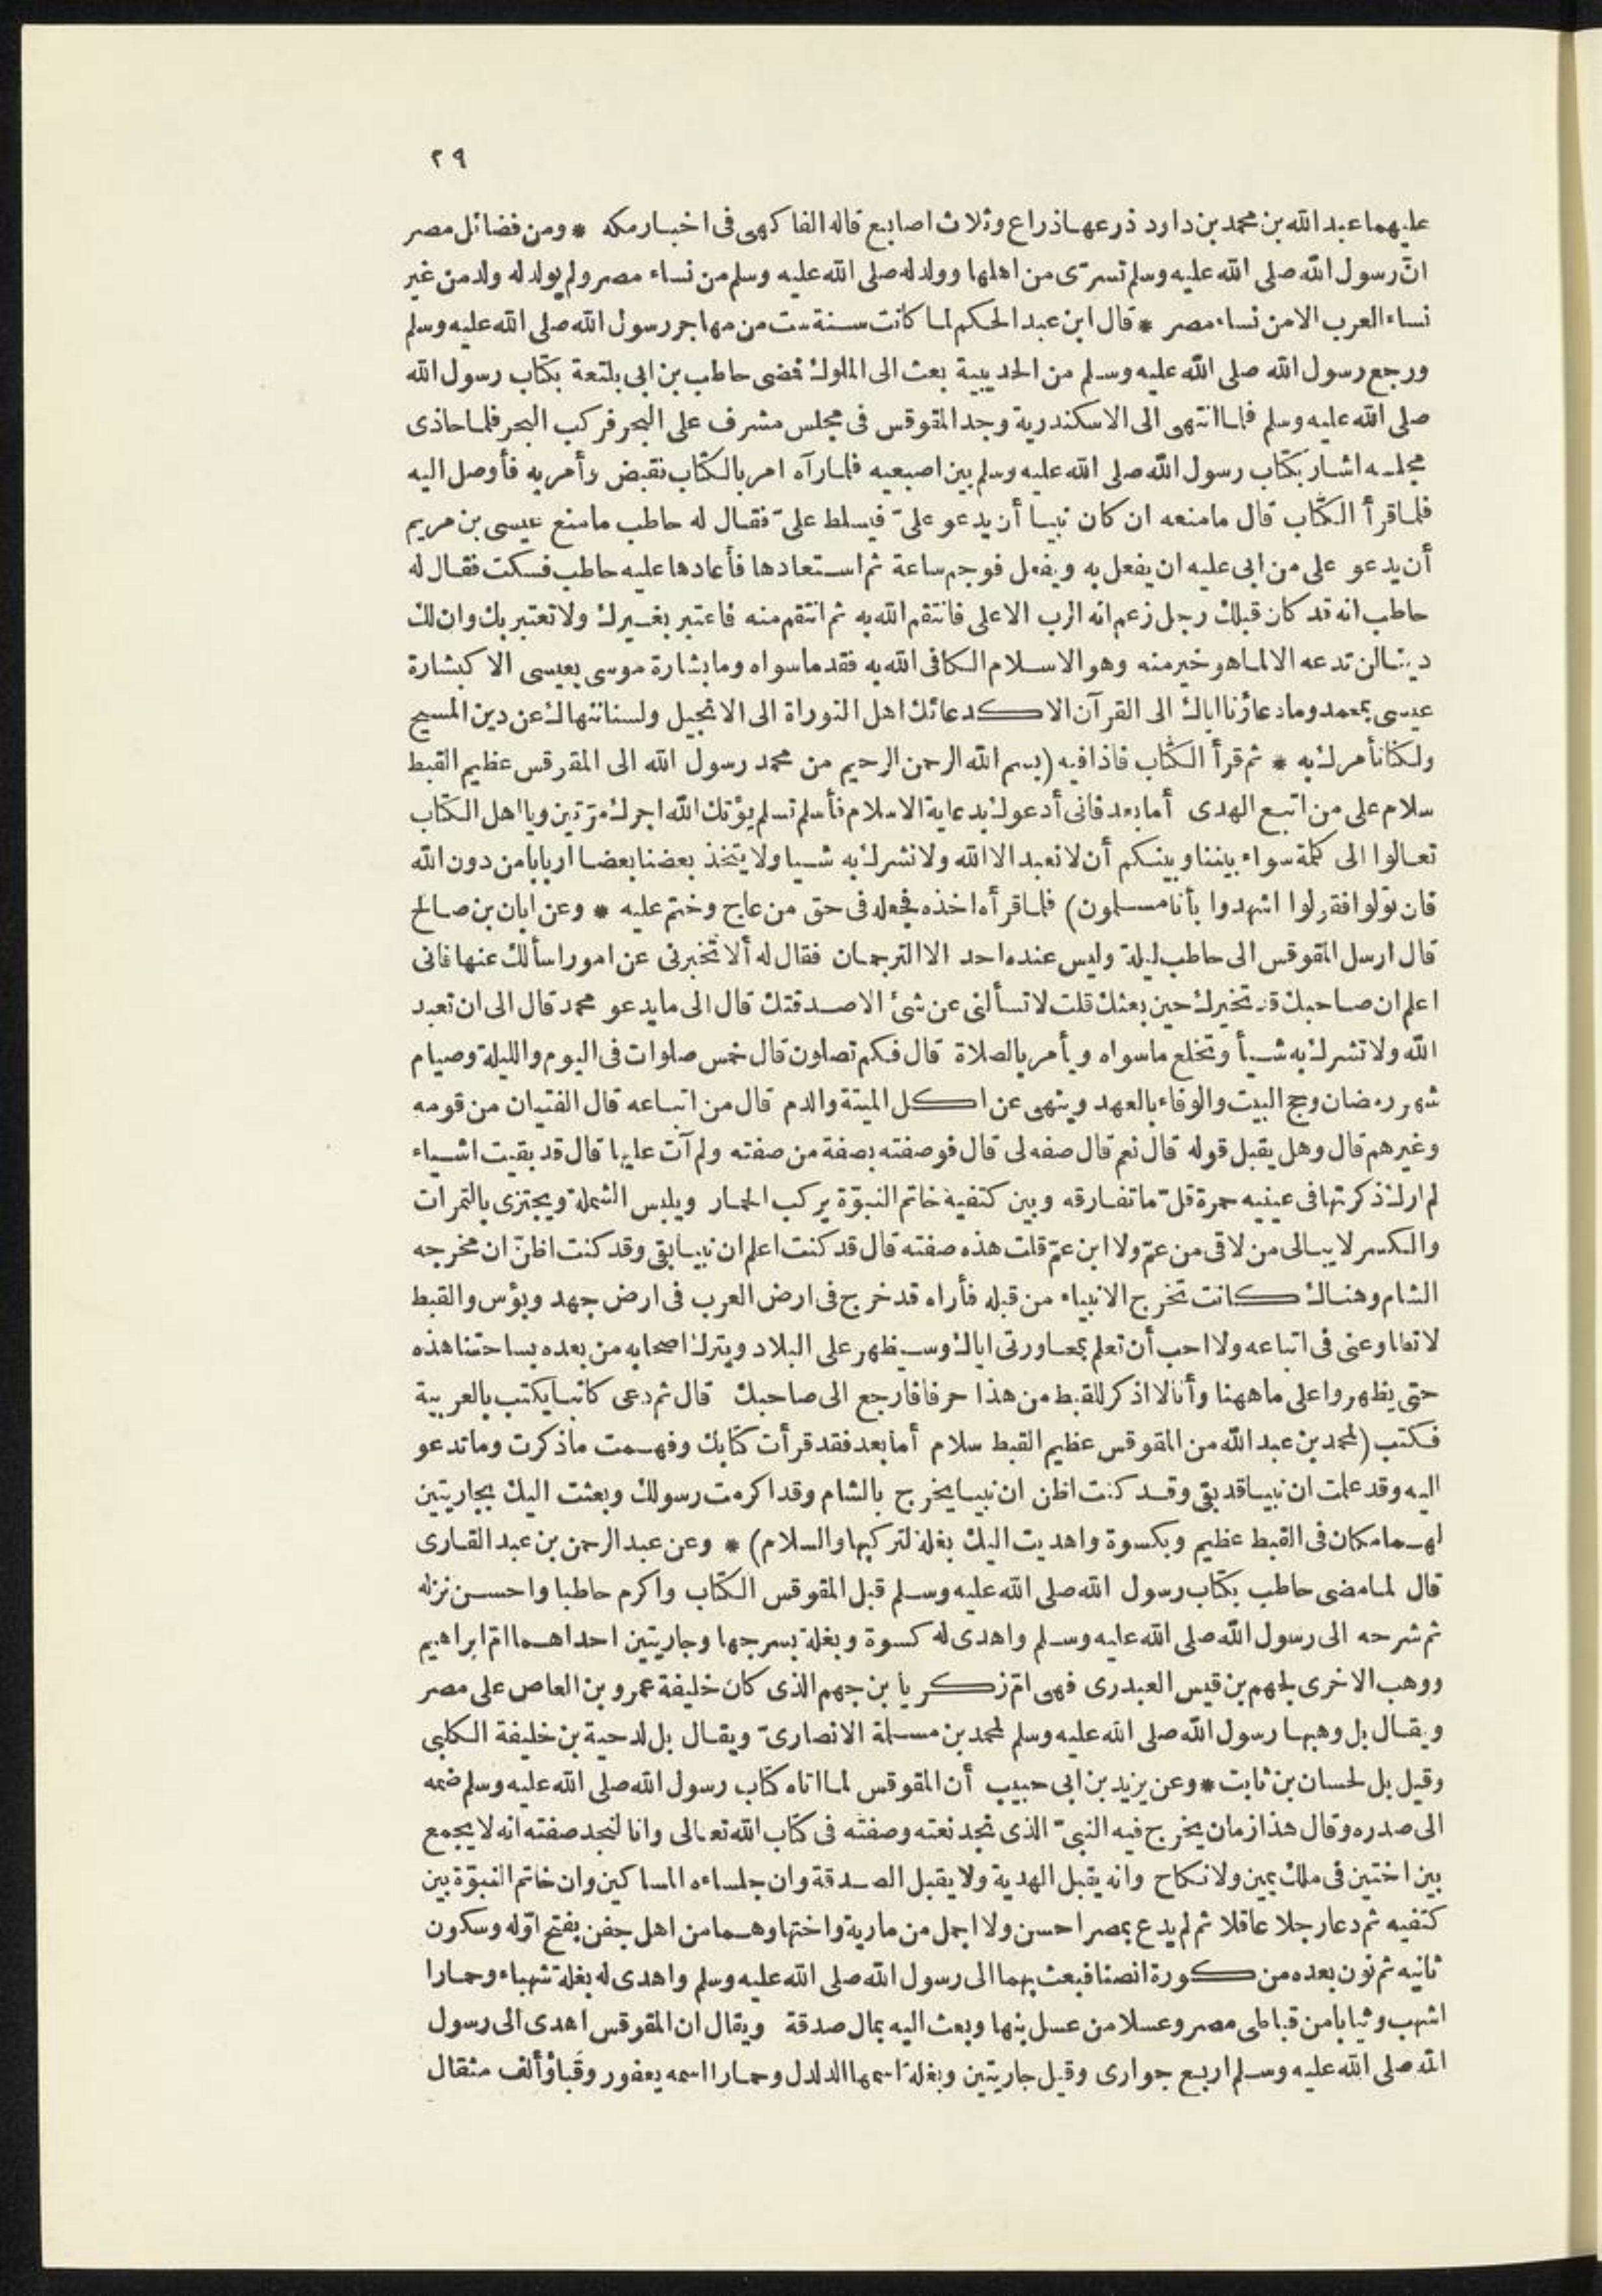 ٢٩
عليهما عبد الله بن محمد بن داود ذرعها ذراع وثلاث اصابع قاله الفاكهى فى اخبار مكه * ومن فضائل مصر
انّ رسول الله صلى الله عليه وسلم تسرّى من اهلها وولد له صلى الله عليه وسلم من نساء مصر ولم يولد له ولد من غير
نساء العرب الا من نساء مصر * قال ابن عبد الحكم لما كانت سنة ست من مهاجر رسول الله صلى الله عليه وسلم
ورجع رسول الله صلى الله عليه وسلم من الحديبية بعث الى الملوك فضى حاطب بن ابى بلتعة بكتاب رسول الله
صلى الله عليه وسلم فلما انتهى الى الاسكندرية وجد المقوقس فى مجلس مشرف على البحر فركب البحر فلما حاذى
مجلسه اشار بكتاب رسول الله صلى الله عليه وسلم بين اصبعيه فلما رآه امر بالكتاب نقبض وأمر به فأوصل اليه
فلما قرأ الكتاب قال ما منعه ان كان نبيا أن يدعو علىّ فيسلط علىّ فقال له حاطب ما منع عيسى بن مريم
أن يدعو على من ابى عليه ان يفعل به ويفعل فوجم ساعة ثم استعادها فأعادها عليه حاطب فسكت فقال له
حاطب انه قد كان قبلك رجل زعم انه الرب الاعلى فانتقم الله به ثم انتقم منه فاعتبر بغيرك ولا تعتبر بك وان لك
دينا لن تدعه الا لما هو خير منه وهو الاسلام الكافى الله به فقد ما سواه وما بشارة موسى بعيسى الا كبشارة
عيسى بمحمد وما دعاؤنا اياك الى القرآن الا كدعائك اهل التوراة الى الانجيل ولسنا ننهاك عن دين المسيح
ولكنا نأمرك به * ثم قرأ الكتاب فاذا فيه (بسم الله الرحمن الرحيم من محمد رسول الله الى المقوقس عظيم القبط
سلام على من اتبع الهدى أما بعد فانى أدعوك بدعاية الاسلام فأسلم تسلم يؤتك الله اجرك مرّتين ويا اهل الكتاب
تعالوا الى كلمة سواء بيننا وبينكم أن لا نعبد الا الله ولا نشرك به شيا ولا يتخذ بعضنا بعضا اربابا من دون الله
فان تولوا فقولوا اشهدوا بأنا مسلمون) فلما قرأه اخذه فجعله فى حق من عاج وختم عليه * وعن ابان بن صالح
قال ارسل المقوقس الى حاطب ليلة وليس عنده احد الا الترجمان فقال له ألا تخبرنى عن امور اسألك عنها فانى
اعلم ان صاحبك قد تخيرك حين بعثك قلت لا تسألنى عن شئ الا صدقتك قال الى ما يدعو محمد قال الى ان تعبد
الله ولا تشرك به شيأ وتخلع ما سواه ويأمر بالصلاة قال فكم تصلون قال خمس صلوات فى اليوم والليلة وصيام
شهر رمضان وحج البيت والوفاء بالعهد وينهى عن اكل الميتة والدم قال من اتباعه قال الفتيان من قومه
وغيرهم قال وهل يقبل قوله قال نعم قال صفه لى قال فوصفته بصفة من صفته ولم آت عليها قال قد بقيت اشياء
لم ارك ذكرتها فى عينيه حمرة قلّ ما تفارقه وبين كتفيه خاتم النبوّة يركب الحمار ويلبس الشملة ويجتزى بالتمرات
والكسر لا يبالى من لاقى من عمّ ولا ابن عمّ قلت هذه صفته قال قد كنت اعلم ان نبيا بقى وقد كنت اظنّ ان مخرجه
الشام وهناك كانت تخرج الانبياء من قبله فأراه قد خرج فى ارض العرب فى ارض جهد وبؤس والقبط
لا تطاوعنى فى اتباعه ولا احب أن تعلم بمحاورتى اياك وسيظهر على البلاد ويترك اصحابه من بعده بساحتنا هذه
حتى يظهروا على ما ههنا وأنا لا اذكر للقبط من هذا حرفا فارجع الى صاحبك قال ثم دعى كاتبا يكتب بالعربية
فكتب (لمحمد بن عبد الله من المقوقس عظيم القبط سلام أما بعد فقد قرأت كتابك وفهمت ما ذكرت وما تدعو
اليه وقد علمت ان نبيا قد بقى وقد كنت اظن ان نبيا يخرج بالشام وقد اكرمت رسولك وبعثت اليك بجاريتين
لهما مكان فى القبط عظيم وبكسوة واهديت اليك بغلة لتركبها والسلام) * وعن عبد الرحمن بن عبد القارى
قال لما مضى حاطب بكتاب رسول الله صلى الله عليه وسلم قبل المقوقس الكتاب واكرم حاطبا واحسن نزله
ثم شرحه الى رسول الله صلى الله عليه وسلم واهدى له كسوة وبغلة بسرجها وجاريتين احداهما امّ ابراهيم
ووهب الاخرى لجهم بن قيس العبدرى فهى امّ زكريا بن جهم الذى كان خليفة عمرو بن العاص على مصر
ويقال بل وهبها رسول الله صلى الله عليه وسلم لمحمد بن مسلمة الانصارىّ ويقال بل لدحية بن خليفة الكلبى
وقيل بل لحسان بن ثابت * وعن يزيد بن ابى حبيب أن المقوقس لما اتاه كتاب رسول الله صلى الله عليه وسلم ضمه
الى صدره وقال هذا زمان يخرج فيه النبىّ الذى نجد نعته وصفته فى كتاب الله تعالى وانا لنجد صفته انه لا يجمع
بين اختين فى ملك يمين ولا نكاح وانه يقبل الهدية ولا يقبل الصدقة وان جلساءه المساكين وان خاتم النبوّة بين
كتفيه ثم دعا رجلا عاقلا ثم لم يدع بمصر احسن ولا اجمل من مارية واختها وهما من اهل جفن بفتح اوّله وسكون
ثانيه ثم نون بعده من كورة انصنا فبعث بهما الى رسول الله صلى الله عليه وسلم واهدى له بغلة شهباء وحمارا
اشهب وثيابا من قباطى مصر وعسلا من عسل بنها وبعث اليه بمال صدقة ويقال ان المقوقس اهدى الى رسول
الله صلى الله عليه وسلم اربع جوارى وقيل جاريتين وبغلة اسمها الدلدل وحمارا اسمه يعفور وقباؤألف مثقال